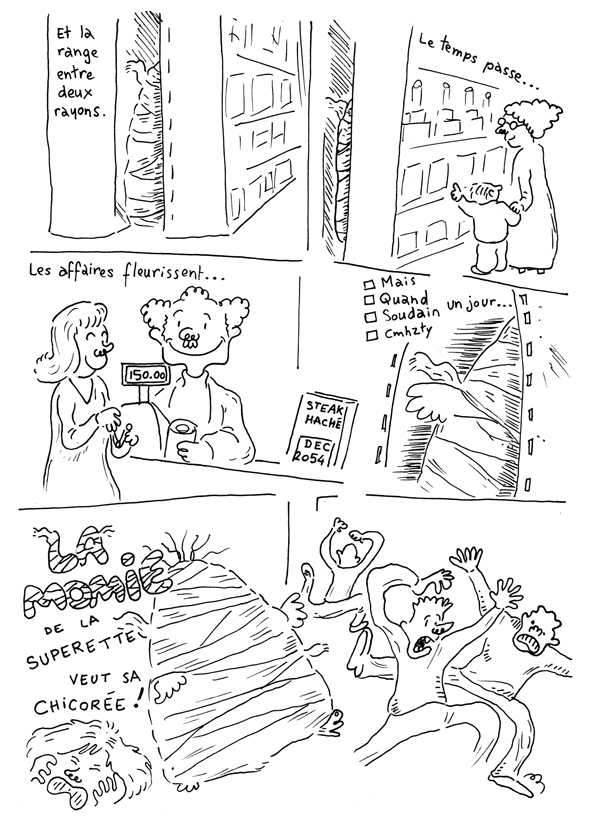 Et la
range
entre
deux
rayons.
Le temps passe...
Les affaires fleurissent...
150.00
STEAK
HACHÉ
DEC
2054
Mais
Quand
Soudain un jour...
Cmhzty
LA
MOMIE
DE LA
SUPERETTE
VEUT SA
CHICORÉE!